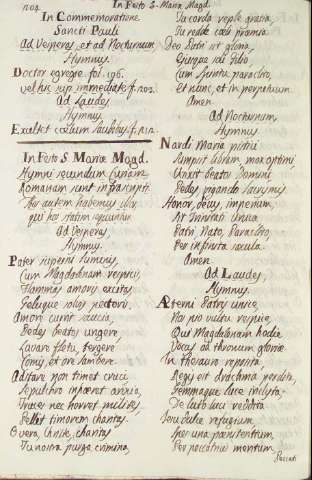 204.
In Festo S. Mariæ Magd.
In Commemoratione
Sancti Pauli
Ad Vesperas, et ad Nocturnum,
Hymnus.
Doctor egregie fol. 196.
vel hic sup. immediate f. 202.
Ad Laudes
Hymnus.
Exultet cælum laudibus f. 212.
In Festo S. Mariæ Magd.
Hymni secundum Curiam
Romanam sunt infrascripti
Nos autem habemus alios
qui hos statim sequuntur
Ad Vesperas
Hymnus.
Pater superni luminis,
Cum Magdalenam respicis,
Flammas amoris excitas,
Geluque solvis pectoris.
Amore currit saucia,
Pedes beatos ungere,
Lavare fletu, tergere
Comis, et ore lambere.
Adstare non timet cruci
Sepulchro inhæret anxia,
Truces nec horret milites,
Pellit timorem charitas.
O vera, Christe, charitas
Tu nostra purga crimina,
Tu corda reple gratia,
Tu redde cæli præmia.
Deo Patri sit gloria,
Eiusque soli Filio
Cum Spiritu paraclito,
Et nunc, et in perpetuum
Amen
Ad Nocturnum
Hymnus
Nardi Maria pistici
Sumpsit libram mox optimi
Unxit beatos Domini
Pedes rigando lacrymis
Honor, decus, imperium,
Sit Trinitati unicæ
Patri, Nato, Paraclito,
Per infinita sæcula.
Amen.
Ad Laudes
Hymnus
Æterni Patris unice,
Nos pio vultu respice,
Qui Magdalenam hodie
Vocas ad thronum gloriæ
In thesauro reposita,
Regis est drachma perdita,
Gemmaque luce inclyta
De luto luci reddita.
Jesu dulce refugium,
Spes una pœnitentium,
Per peccatricis meritum
Peccati